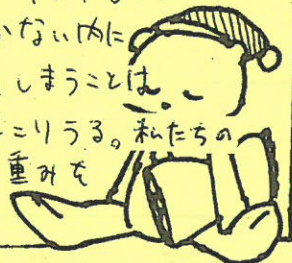 ない内に
しまうことは
こりうる。私たちの
重みを